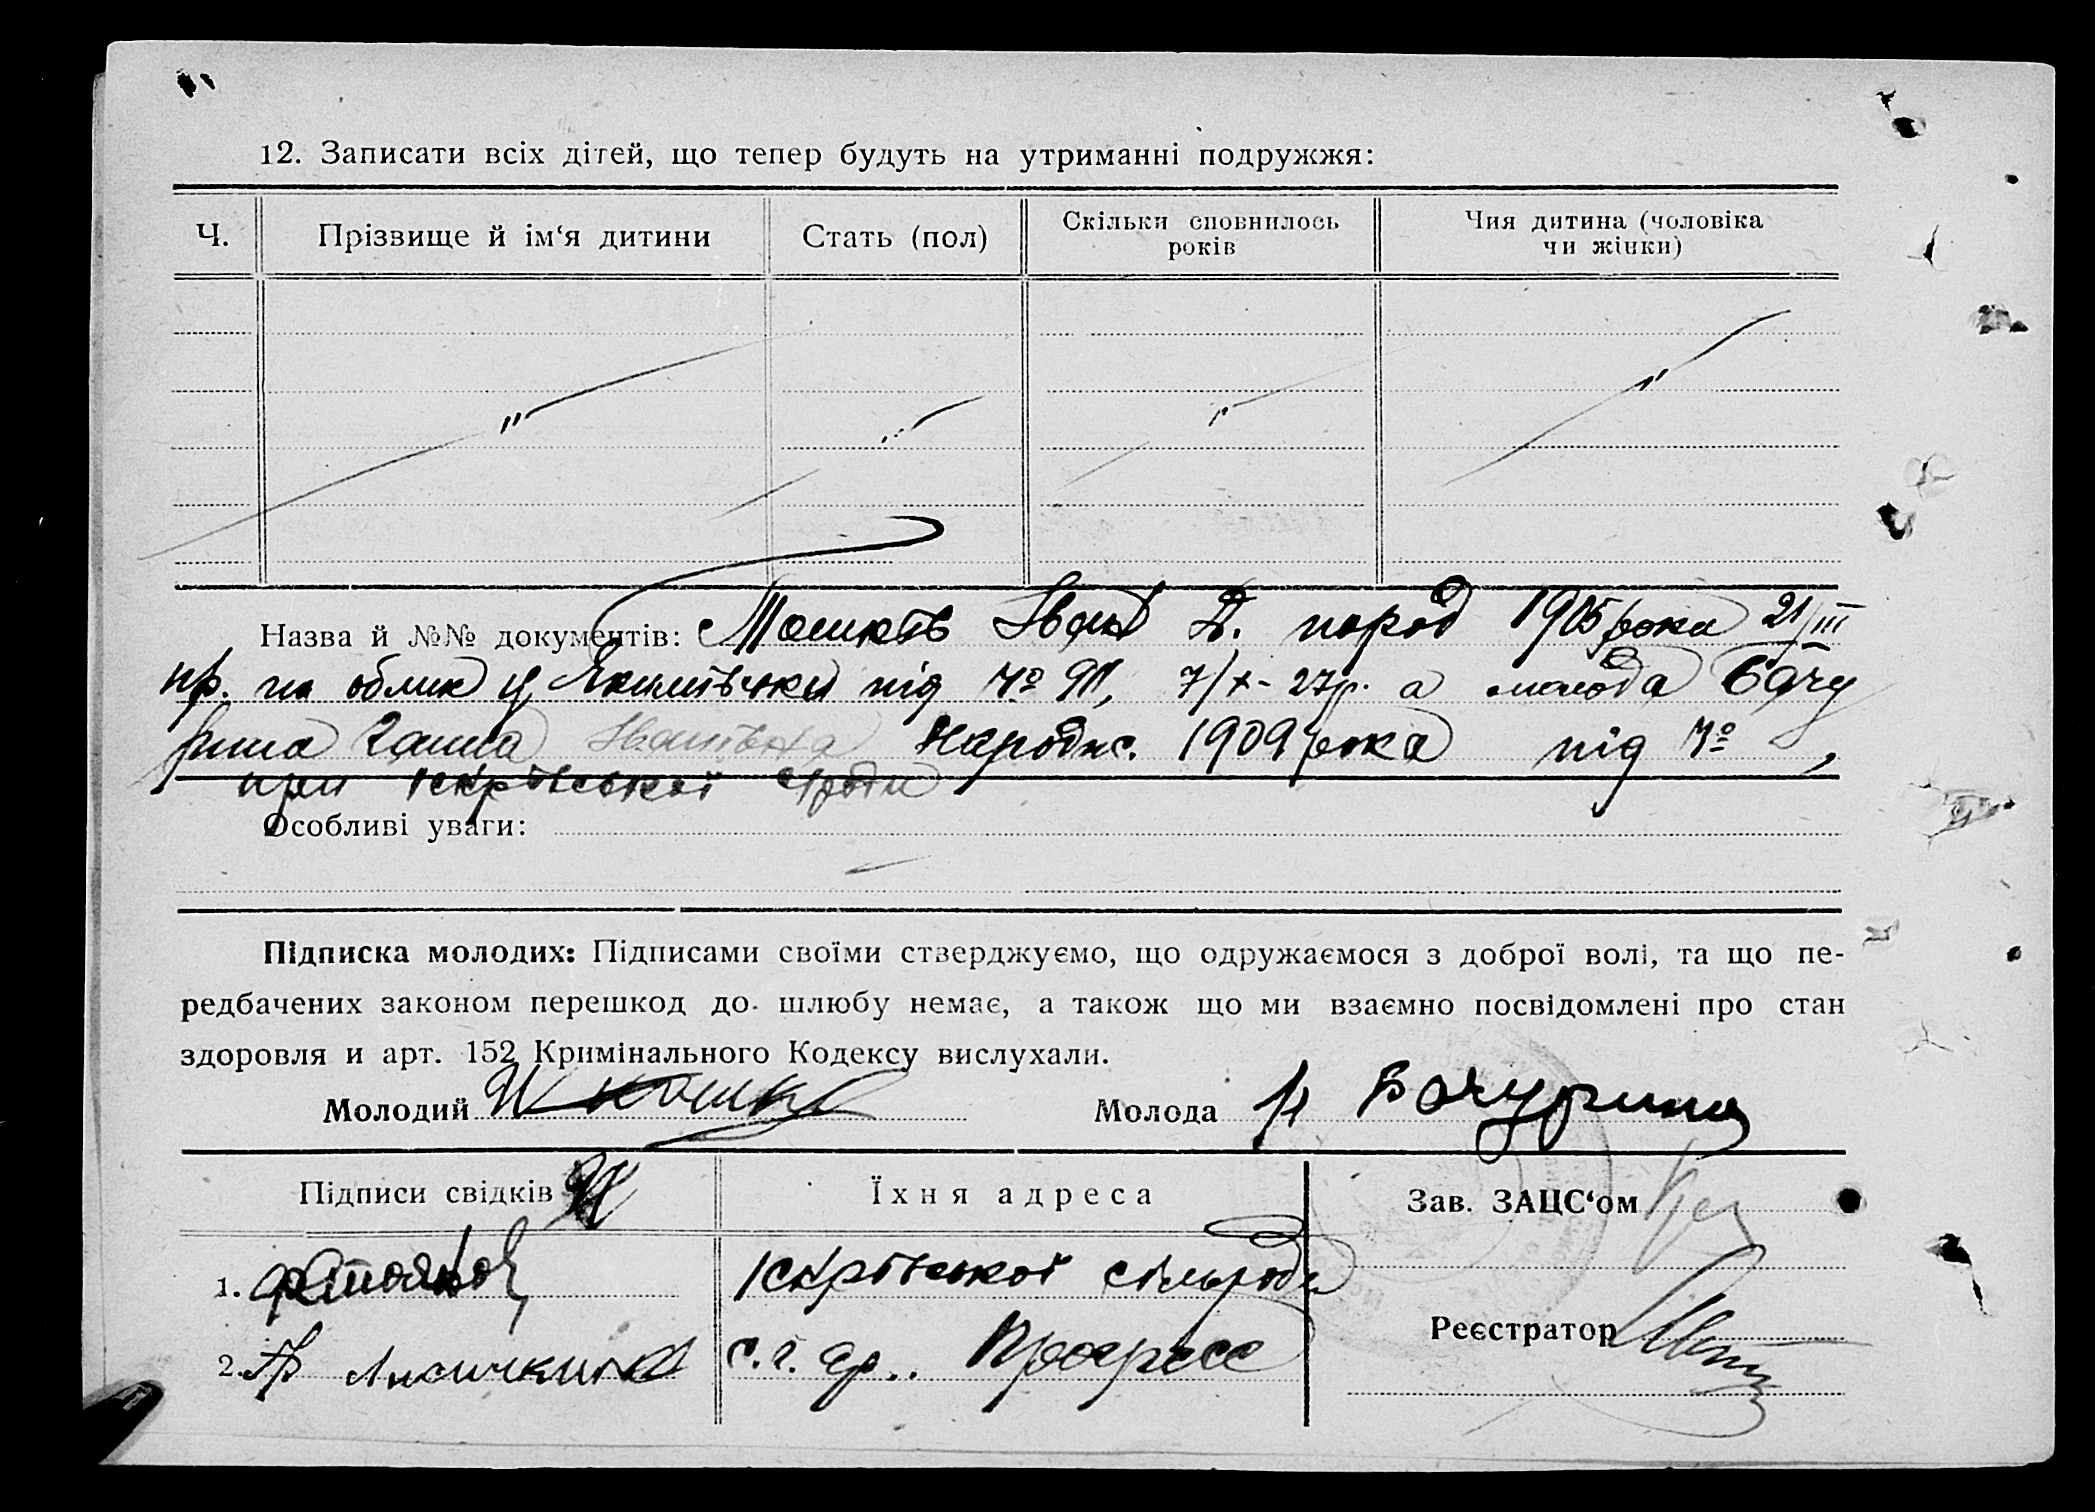 12. Записати всіх дітей, що тепер будуть на утриманні подружжя:
Ч. Прізвище й ім‘я дитини Стать (пол) Скільки сповнилось років Чия дитина (чоловіка чи жінки)
Назва й №№ документів: Іван Д. народ 1905 рока 21/III
пр. на облик у під № 7/X - 27р. а молода Бачу
рина Ганна Івановна народж. 1909 рока під №,
при Іскрівської с/ради
Особливі уваги:
Підписка молодих: Підписами своїми стверджуємо, що одружаємося з доброї волі, та що пе-
редбачених законом перешкод до шлюбу немає, а також що ми взаємно посвідомлені про стан
здоровля и арт. 152 Кримінального Кодексу вислухали.
Молодий Молода Бачурина
Підписи свідків Їхня адреса Зав. ЗАЦС‘ом
1. Іскрівської сільради
Реєстратор
2. с.г. ар.. Прогресс